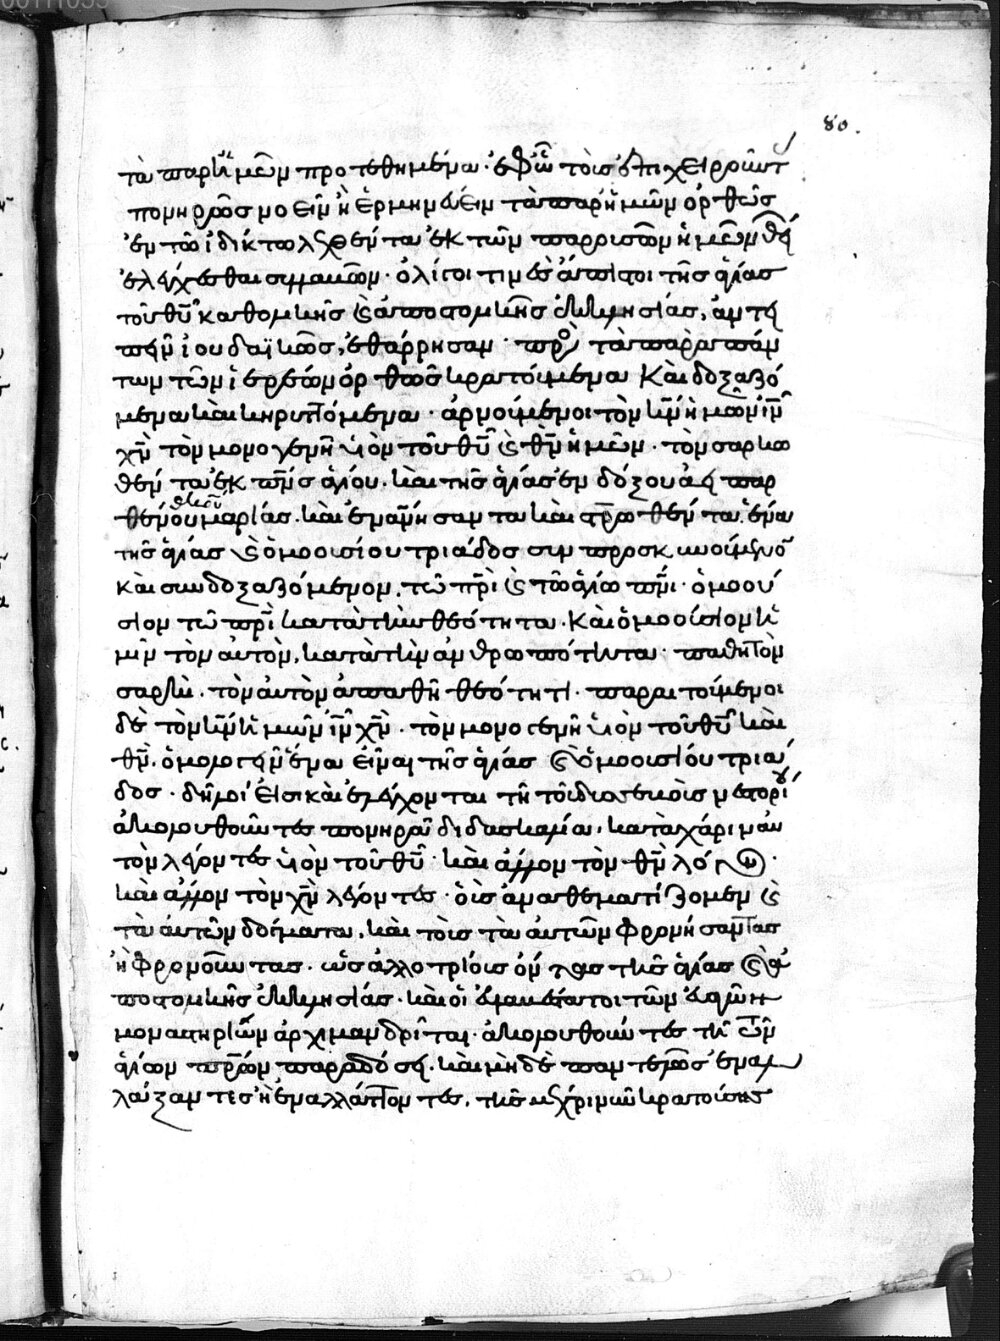 80.
τὰ παρ' ἡμῶν προτεθημένα· ἐφ' ᾧ τοῖς ἐπιχειροῦντ
πονηρῶς νοεῖν ἢ ἑρμηνεύειν τὰ παρ' ἡμῶν ὀρθῶς
ἐν τῶ ἰδίκτω λεχθέντα ἐκ τῶν παρ
ἐλέγχεσθαι ὀλίγοι τινὲς ἀπόστοι τῆς ἁγίας
τοῦ θῦ καθολικῆς καὶ ἀποστολικῆς ἐκκλησίας, ἀντι
πεῖν ἰουδαϊκῶς, ἐθάρρησαν πρὸς τὰ παρὰ πάν
των τῶν ἱερέων ὀρθῶς κρατούμενα καὶ δοξαζό
μενα καὶ κηρυττόμενα· ἀρνούμενοι τὸν κν̄ ἡμῶν ιν̄
χν̄ τὸν μονογενῆ υἱὸν τοῦ θῦ καὶ θν̄ ἡμῶν· τὸν σαρκω
θέντα ἐκ πν̄ς ἁγίου· καὶ τῆς ἁγίας ἐνδόξου ἀειπαρ
θένου θκου μαρίας· καὶ ἐνανθρωπήσαντα καὶ στρωθέντα· ἕνα
τῆς ἁγίας καὶ ὁμοουσίου τριάδος συνπροσκυνούμενο
καὶ συνδοξαζόμενον, τῶ πρι καὶ τῶ ἁγίω πνι· ὁμοού
σιον τῶ πρι κατὰ τὴν θεότητα· καὶ ὁμοούσιον ἡ
μῖν τὸν αὐτὸν, κατὰ τὴν ἀνθρωπότητα· παθητὸν
σαρκὶ· τὸν αὐτὸν ἀπαθῆ θεότητι· παραιτούμενοι
δὲ τὸν κν̄ ἡμῶν ιν̄ χν̄· τὸν μονογενῆ υἱὸν τοῦ θῦ καὶ
θν̄· ὁμολογεῖν ἕνα εἶναι τῆς ἁγίας καὶ ὁμοουσίου τριά
δος· δῆλοί εἰσι καὶ ἐλέγχονται τῆ τοῦ δυσσεβοῦς νεστορί
ἀκολουθοῦντες πονηρᾶ διδασκαλία· κατὰ χάριν αὐ
τὸν λέγοντες υἱὸν τοῦ θῦ· καὶ ἄλλον τὸν θν̄ λόγον·
καὶ ἄλλον τὸν χν̄ λέγοντες· οὓς ἀναθεματίζομεν καὶ
τὰ αὐτῶν δόγματα, καὶ τοὺς τὰ αὐτῶν φρονήσαντας
ἢ φρονοῦντας· ὡς ἀλλοτρίους ὄντας τῆς ἁγίας καὶ ἀ
ποστολικῆς ἐκκλησίας· καὶ οἱ εὐλαβέστατοι τῶν εὐαγῶν
μοναστηρίων ἀρχιμανδρῖται· ἀκολουθοῦντες τῆ τῶν
ἁγίων πρων παραδόσει· καὶ μηδὲ παντελῶς ἐναλ
λάξαντες ἢ ἐναλλάττοντες, τῆς μέχρι νῦν κρατούσης